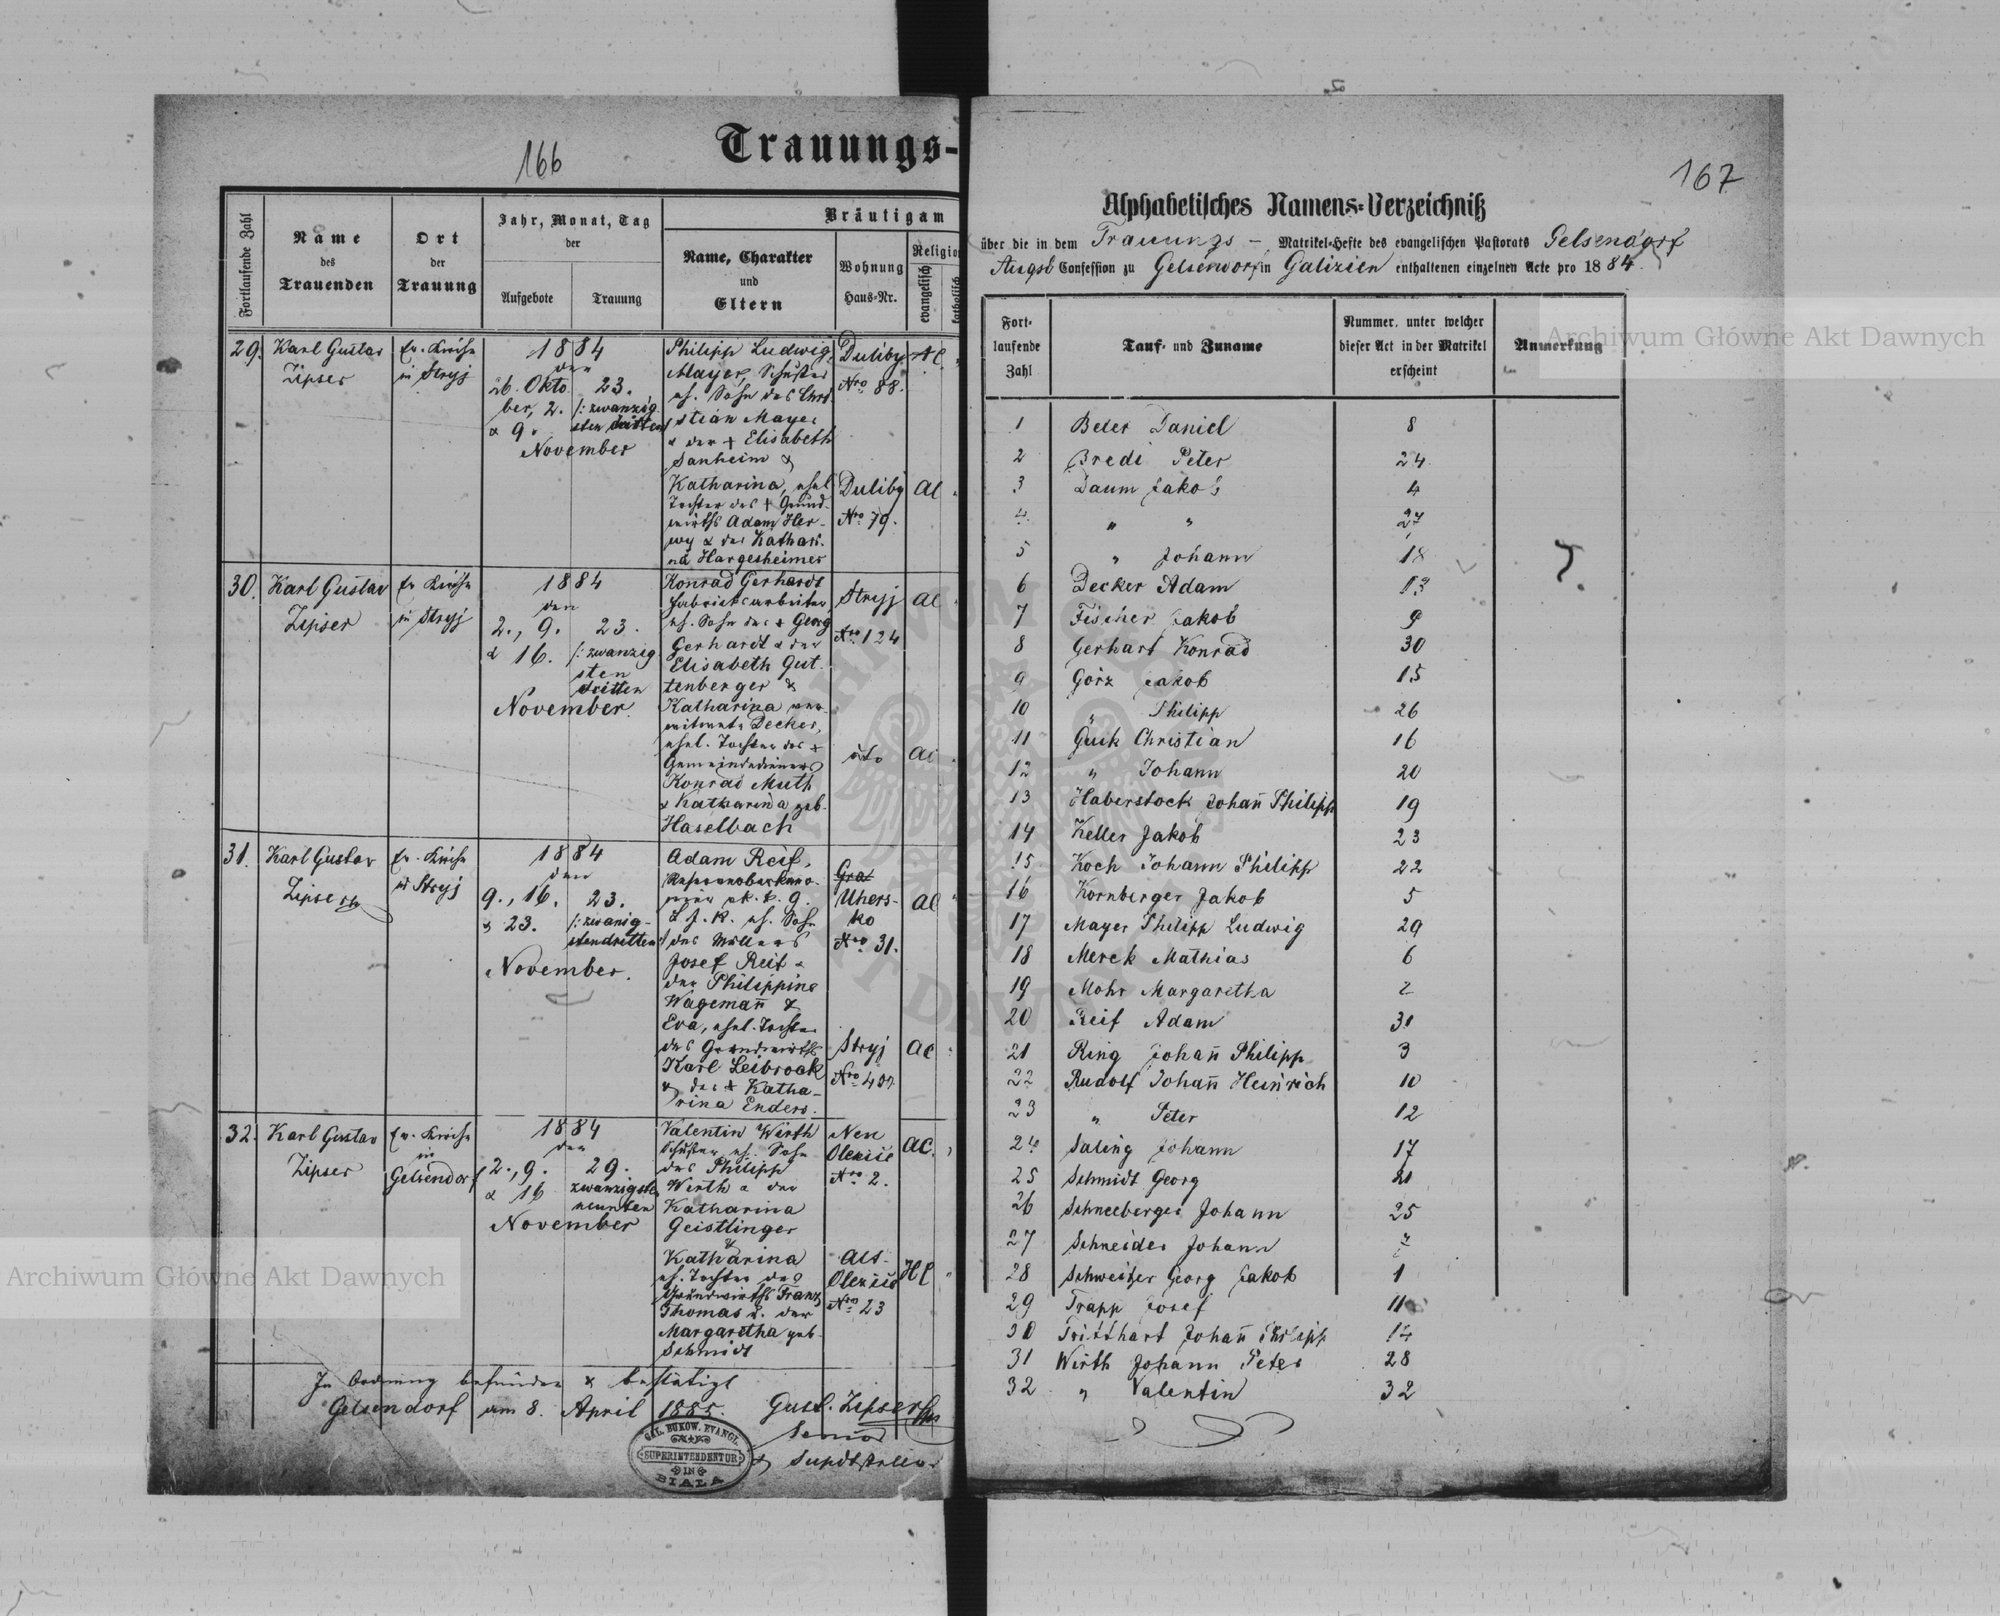 166
Trauungs-
Fortlaufende Zahl
Name
des
Trauenden
Ort
der
Trauung
Jahr, Monat, Tag
der
Aufgebote
Trauung
Bräutigam
Name, Charakter
und
Eltern
Wohnung
Haus-Nr.
Religio
evangelisch
katholisch
29.
Karl Gustav
Zipser
Ev. Kirche
in Stryj
1884
den
26. Okto
ber, 2.
& 9.
23.
/: zwanzig
sten dritten
November
Philipp Ludwig
Mayer, Schuster
eh. Sohn des Chri
stian Mayer
& der + Elisabeth
Sanheim &
Duliby
Nro 88.
AC
Katharina, ehel
Tochter des + Grund-
wirths Adam Her-
wy & der Kathari-
na Hargesheimer
Duliby
Nro 79.
AC
30.
Karl Gustav
Zipser
Ev. Kirche
in Stryj
1884
den
2., 9.
& 16.
23.
/: zwanzig
sten
dritten
November.
Konrad Gerhardt
Fabriksarbeiter,
eh. Sohn des + Georg
Gerhardt & der
Elisabeth Gut
tenberger &
Stryj
Nro 124
AC
Katharina ver
witwete Decker,
ehel. Tochter des +
Gemeindedieners
Konrad Muth
& Katharina geb.
Haselbach
dto
AC
31.
Karl Gustav
Zipser
Ev. Kirche
in Stryj
1884
den
9., 16.
& 23.
23.
/: zwanzig-
stendritten
November.
Adam Reif,
eh. Sohn
des Müllers
Josef Reif &
der Philippine
Wagemañ &
Gra
Uhers-
ko
Nro 31.
AC
Eva, ehel. Tochter
des Grundwirths
Karl Leibrock
& der + Katha-
rina Enders.
Stryj
Nro
AC
32.
Karl Gustav
Zipser
Ev. Kirche
in
Gelsendorf
1884
den
2., 9.
& 16
29.
zwanzigste
neunten
November
Valentin Wirth
Schuster eh. Sohn
des Philipp
Wirth & der
Katharina
Geistlinger
&
Neu
Olexiic
Nro 2.
AC.
Katharina
eh. Tochter des
Grundwirths Franz
Thomas u. der
Margaretha geb.
Schmidt
Alt-
Olexiic
Nro 23
HC
In Ordnung befunden & bestätigt
Gelsendorf am 8. April 1885.
Gust. Zipser
Senior
GAL. BUKOW. EVANGL.
SUPERINTENDENTUR
IN
BIALA
167
Alphabetisches Namens-Verzeichniß
über die in dem Trauungs- Matrikel-Hefte des evangelischen Pastorats Gelsendorf
Augsb Confession zu Gelsendorf in Galizien enthaltenen einzelnen Acte pro 1884.
Fort-
laufende
Zahl
Tauf- und Zuname
Nummer, unter welcher
dieser Act in der Matrikel
erscheint
Anmerkung
1 Beder Daniel 8
2 Bredi Peter 24
3 Daum Jakob 4
4 " " 27
5 " Johann 18
6 Decker Adam 13
7 Fischer Jakob 9
8 Gerhart Konrad 30
9 Görz Jakob 15
10 " Philipp 26
11 Guck Christian 16
12 " Johann 20
13 Haberstock Johañ Philipp 19
14 Keller Jakob 23
15 Koch Johann Philipp 22
16 Kornberger Jakob 5
17 Mayer Philipp Ludwig 29
18 Merck Mathias 6
19 Mohr Margaretha 2
20 Reif Adam 31
21 Ring Johañ Philipp 3
22 Rudolf Johañ Heinrich 10
23 " Peter 12
24 Saling Johann 17
25 Schmidt Georg 21
26 Schneeberger Johann 25
27 Schneider Johann
28 Schweitzer Georg Jakob 1
29 Trapp Josef 11
30 Tritthart Johañ Philipp 14
31 Wirth Johann Peter 28
32 " Valentin 32
Archiwum Główne Akt Dawnych
Archiwum Główne Akt Dawnych